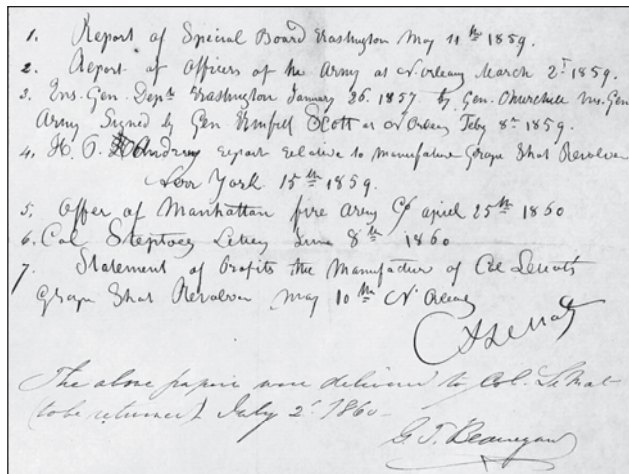 1. Report of Special Board Washington May 11th 1859.
2. Report of Officers of the Army at N. Orleans March 2d 1859.
3. Ins. Gen. Dept. Washington January 26. 1857. by Gen. Churchill Ins. Gen
Army Signed by Gen Scott at N Orleans Feby 8th 1859.
4. H. O. report relative to manufacture Grape Shot Revolver
New York 15th 1859.
5. Offer of Manhattan fire Arms Co april 25th 1860
6. Col Steptoe's Letter June 8th 1860
7. Statement of Profits the Manufacture of Col Lemat's
Grape Shot Revolver May 10th N. Orleans
A Lemat
The above papers were delivered to Col. LeMat
(to be returned) July 2d 1860—
G. T. Beauregard